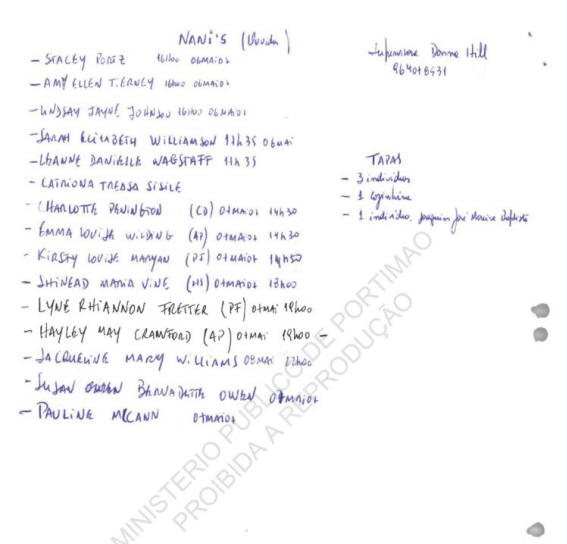 NANI'S (Ouvidas)
- STACEY PORTZ 16h00 06MAIO7
- AMY ELLEN TIERNEY 16h00 06MAIO7
- LINDSAY JAYNE JOHNSON 16h00 06MAIO7
- SARAH ELIZABETH WILLIAMSON 11h35 06MAI
- LHANNE DANIELLE WAGSTAFF 11h35
- CATRIONA TREASA SISILE
- CHARLOTTE PENINGTON (CO) 07MAIO7 14h30
- EMMA LOUISE WILDING (AP) 07MAIO7 14h30
- KIRSTY LOUISE MARYAN (PJ) 07MAIO7 14h50
- SHINEAD MARIA VINE 07MAIO7 18h00
- LYNE RHIANNON FRETTER (PF) 07MAI 19h00
- HAYLEY MAY CRAWFORD (AP) 07MAI 19h00 -
- JACQUELINE MARY WILLIAMS 08MAI 12h00
- SUSAN BERNADETTE OWEN 07MAIO7
- PAULINE MCCANN 07MAIO7
Supervisora Donna Hill
TAPAS
- 3 individuos
- 1 cozinheira
- 1 individuo, Joaquim José Moreira
MINISTERIO PUBLICO DE PORTIMAO
PROIBIDA A REPRODUÇÃO